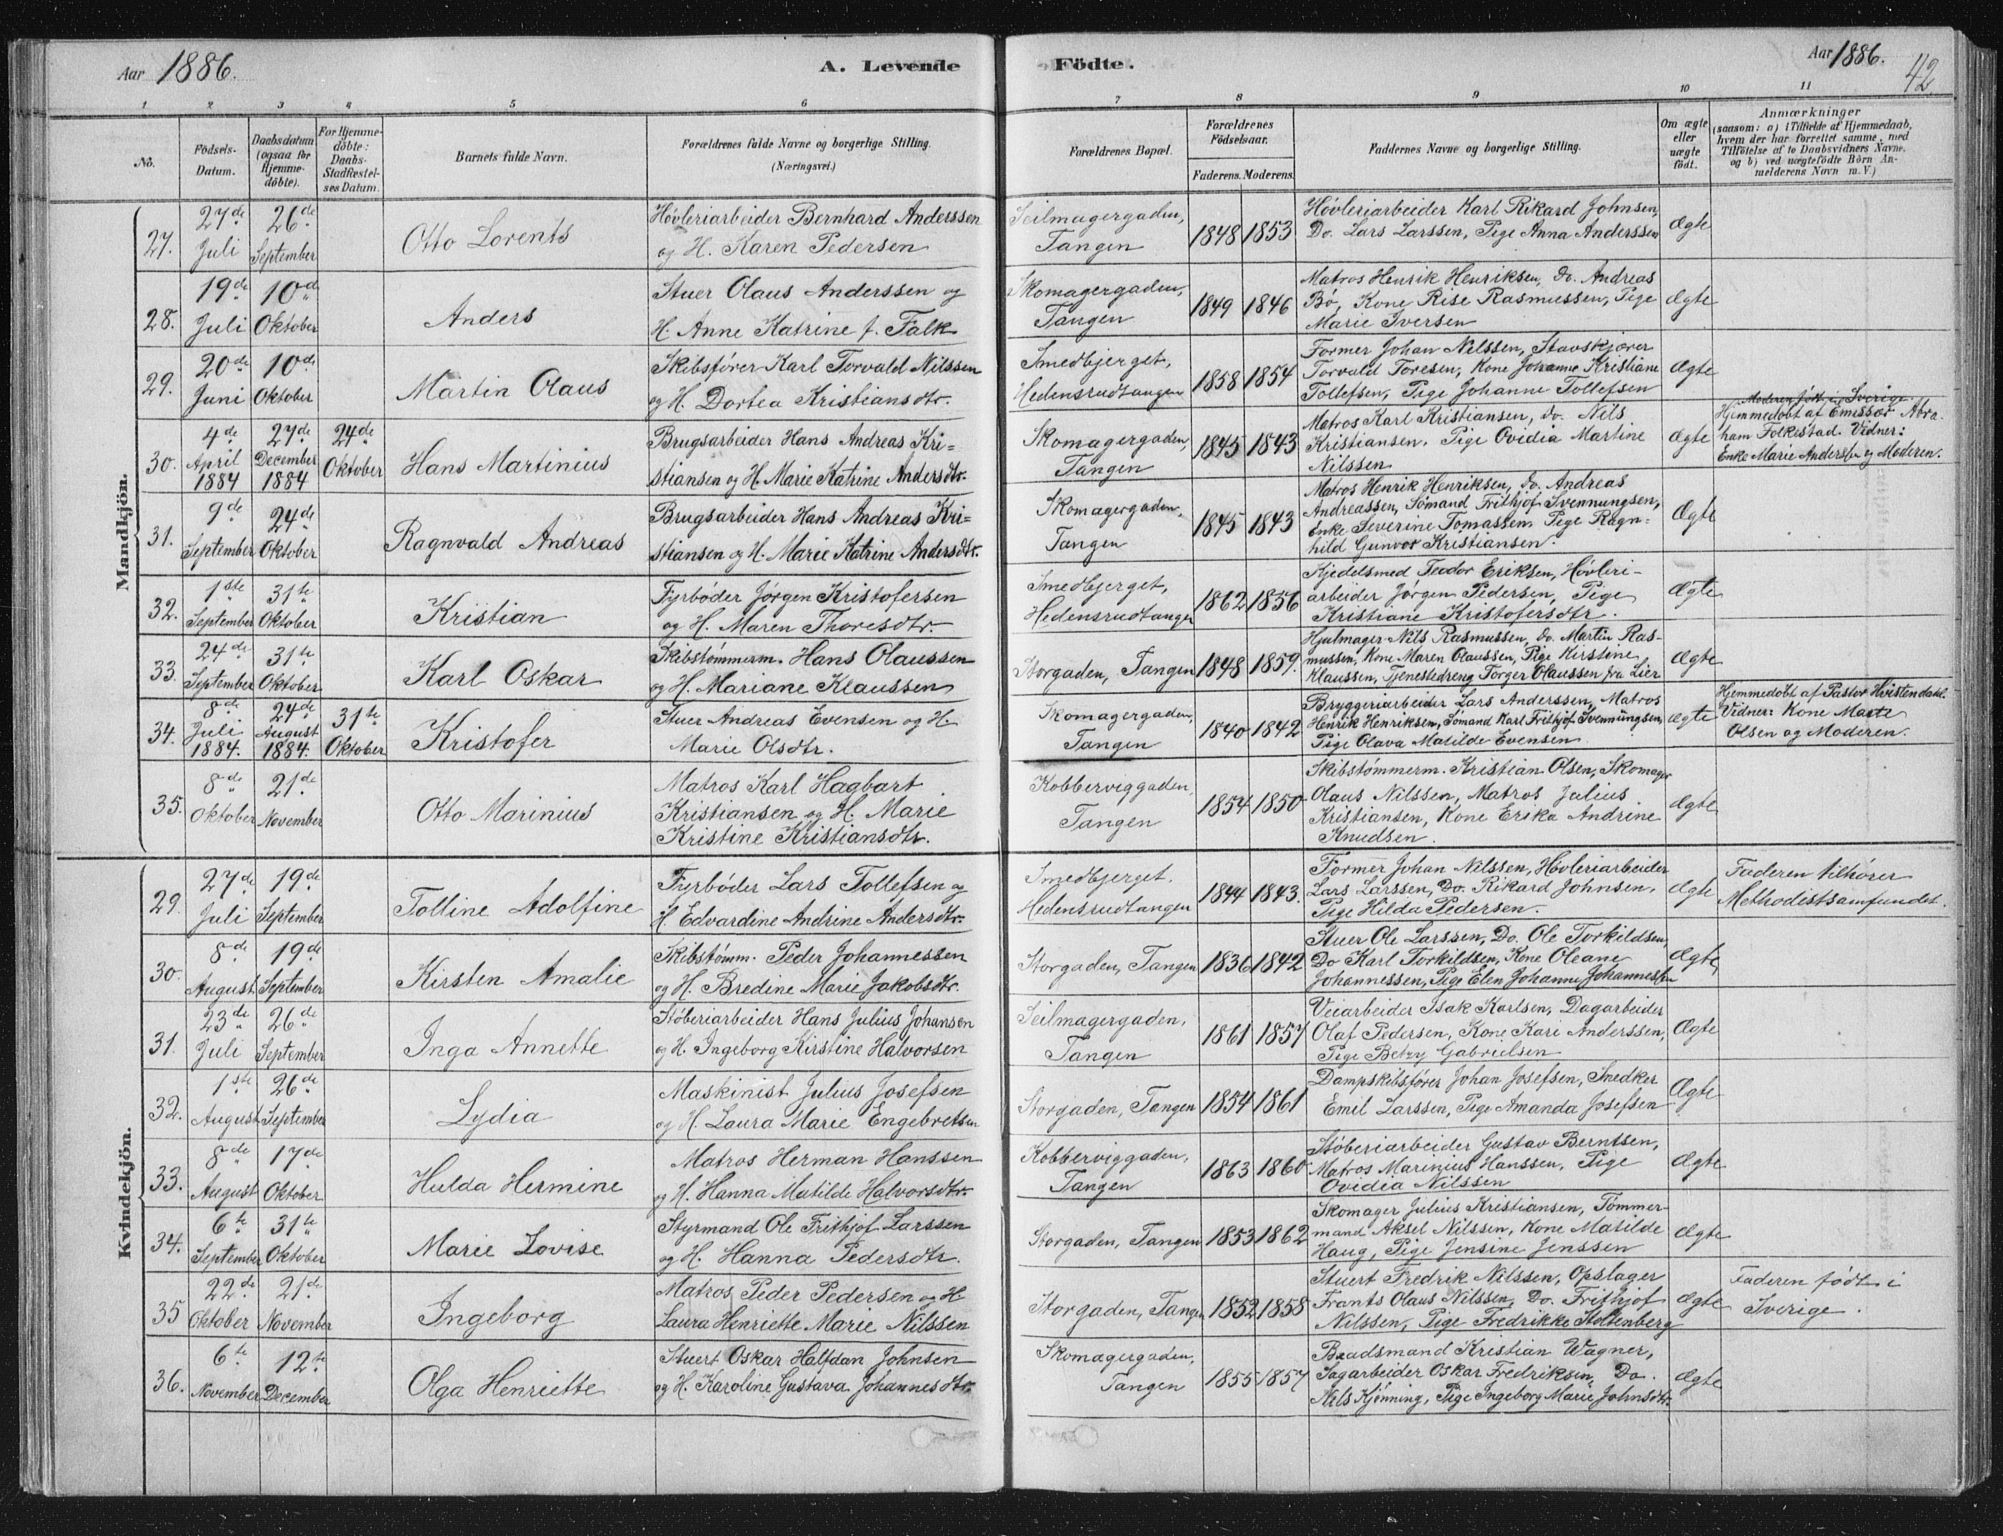 Aar 1886.
A. Levende Födte.
Aar 1886.
42
1 2 3 4 5 6 7 8 9 10 11
No.
Födsels-
Datum.
Daabsdatum
(ogsaa for
Hjemme-
döbte).
For Hjemme-
döbte:
Daabs-
Stadfæstel-
ses Datum.
Barnets fulde Navn.
Forældrenes fulde Navne og borgerlige Stilling.
(Næringsvei.)
Forældrenes Bopæl.
Forældrenes
Födselsaar.
Faderens. Moderens.
Faddernes Navne og borgerlige Stilling.
Om ægte
eller
uægte
födt.
Anmærkninger
(saasom: a) i Tilfælde af Hjemmedaab,
hvem der har forrettet samme, med
Tilföielse af to Daabsvidners Navne.
og b) ved uægtefödte Börn An-
melderens Navn m. V.)
Mandkjön.
27.
27de Juli
26de September
Otto Lorents
Høvleriarbeider Bernhard Anderssen
og H. Karen Pedersen
Seilmagergaden,
Tangen
1848 1853
Høvleriarbeider Karl Rikard Johnsen,
Do. Lars Larssen, Pige Anna Anderssen
Ægte
28.
19de Juli
10de Oktober
Anders
Stuer Olaus Anderssen og
H. Anne Katrine f. Falk
Skomagergaden,
Tangen
1849 1846
Matros Henrik Henriksen, Do. Andreas
Bø, Kone Rise Rasmussen, Pige
Marie Iversen
Ægte
29.
20de Juni
10de Oktober
Martin Olaus
Skibsfører Karl Torvald Nilssen
og H. Dortea Kristiansdtr.
Smedbjerget,
Hedensrudtangen
1858 1854
Former Johan Nilssen, Stavskjører
Torvald Toresen, Kone Johanne Kristiane
Tollefsen, Pige Johanne Tollefsen
Ægte
Moderen født i Sverige.
30.
4de April 1884
27de December 1884
24de Oktober
Hans Martinius
Brugsarbeider Hans Andreas Kri-
stiansen og H. Marie Katrine Andersdtr.
Skomagergaden,
Tangen
1845 1843
Matros Karl Kristiansen, do. Nils
Kristiansen, Pige Ovidia Martine
Nilssen
Ægte
Hjemmedøbt af Emissær Abra-
ham Folkestad. Vidner:
Enke Marie Andersen og Moderen.
31.
9de September
24de Oktober
Ragnvald Andreas
Brugsarbeider Hans Andreas Kri-
stiansen og H. Marie Katrine Andersdtr.
Skomagergaden,
Tangen
1845 1843
Matros Henrik Henriksen, do. Andreas
Andreassen, Sømand Frithjof Svennungsen,
Enke Severine Tomassen, Pige Ragn-
hild Gunvor Kristiansen.
Ægte
32.
1ste September
31te Oktober
Kristian
Fyrbøder Jørgen Kristofersen
og H. Maren Thoresdtr.
Smedbjerget,
Hedensrudtangen
1862 1856
Kjedelsmed Teodor Eriksen, Høvleri-
arbeider Jørgen Pedersen, Pige
Kristiane Kristofersdtr.
Ægte
33.
24de September
31te Oktober
Karl Oskar
Skibstømmerm. Hans Olaussen
og H. Mariane Klaussen
Storgaden, Tangen
1848 1859.
Hjulmager Nils Rasmussen, do. Martin Ras-
mussen, Kone Maren Olaussen, Pige Kirstine
Klaussen, Tjenestedreng Torger Olaussen fra Lier
Ægte
34.
8de Juli 1884.
24de August 1884.
31te Oktober
Kristofer
Stuer Andreas Evensen og H.
Marie Olsdtr.
Skomagergaden,
Tangen
1840 1842
Bryggeriarbeider Lars Anderssen, Matros
Henrik Henriksen, Sømand Karl Frithjof Svennungsen,
Pige Olava Matilde Evensen
Ægte
Hjemmedøbt af Pastor Hvistendahl.
Vidner: Kone Marte
Olsen og Moderen.
35.
8de Oktober
21de November
Otto Marinius
Matros Karl Hagbart
Kristiansen og H. Marie
Kristine Kristiansdtr.
Kobberviggaden,
Tangen
1854 1850
Skibstømmerm. Kristian Olsen, Skomager
Olaus Nilssen, Matros Julius
Kristiansen, Kone Erika Andrine
Knudsen.
Ægte
Kvindekjön.
29.
27de Juli
19de September
Tolline Adolfine
Fyrbøder Lars Tollefsen og
H. Edvardine Andrine Andersdtr.
Smedbjerget,
Hedensrudtangen
1844 1843.
Former Johan Nilssen, Høvleriarbeider
Lars Larssen, Do. Rikard Johnsen,
Pige Hilda Pedersen.
Ægte
Faderen tilhører
Methodistsamfundet.
30.
8de August
19de September
Kirsten Amalie
Skibstømm. Peder Johannessen
og H. Bredine Marie Jakobsdtr.
Storgaden, Tangen
1836 1842
Stuer Ole Larssen, Do. Ole Torkildsen,
Do Karl Torkildsen, Kone Oleane
Johannessen, Pige Elen Johanne Johannessen
Ægte
31.
23de Juli
26de September
Inga Annette
Støberiarbeider Hans Julius Johansen
og H. Ingeborg Kirstine Halvorsen
Seilmagergaden,
Tangen
1861 1857
Veiarbeider Isak Karlsen, Dagarbeider
Olaf Pedersen, Kone Kari Anderssen,
Pige Betzy Gabrielsen
Ægte
32.
1ste August
26de September
Lydia
Maskinist Julius Josefsen
og H. Laura Marie Engebretsen
Storgaden, Tangen
1854 1861
Dampskibsfører Johan Josefsen, Snedker
Emil Larssen, Pige Amanda Josefsen
Ægte
33.
8de August
17de Oktober
Hulda Hermine
Matros Herman Hanssen
og H. Hanna Matilde Halvorsdtr.
Kobberviggaden,
Tangen
1863 1860
Støberiarbeider Gustav Berntsen,
Matros Marinius Hanssen, Pige
Ovidia Nilssen
Ægte
34.
6te September
31te Oktober
Marie Lovise
Styrmand Ole Frithjof Larssen
og H. Hanna Pedersdtr.
Storgaden, Tangen
1853 1862
Skomager Julius Kristiansen, Tømmer-
mand Aksel Nilssen, Kone Matilde
Haug, Pige Jensine Jenssen
Ægte
35
22de Oktober
21de November
Ingeborg
Matros Peder Pedersen og H
Laura Henriette Marie Nilssen
Storgaden, Tangen
1852 1858
Stuert Fredrik Nilssen, Opslager
Frants Olaus Nilssen, Do. Frithjof
Nilssen, Pige Fredrikke Stoltenberg
Ægte
Faderen født i
Sverige.
36.
6te November
12te December
Olga Henriette
Stuert Oskar Halfdan Johnsen
og H. Karoline Gustava Johannesdtr.
Skomagergaden,
Tangen
1855 1857
Baadsmand Kristian Wagner,
Sagarbeider Oskar Fredriksen, Do.
Nels Kjønning, Pige Ingeborg Marie Johnsdtr.
Ægte